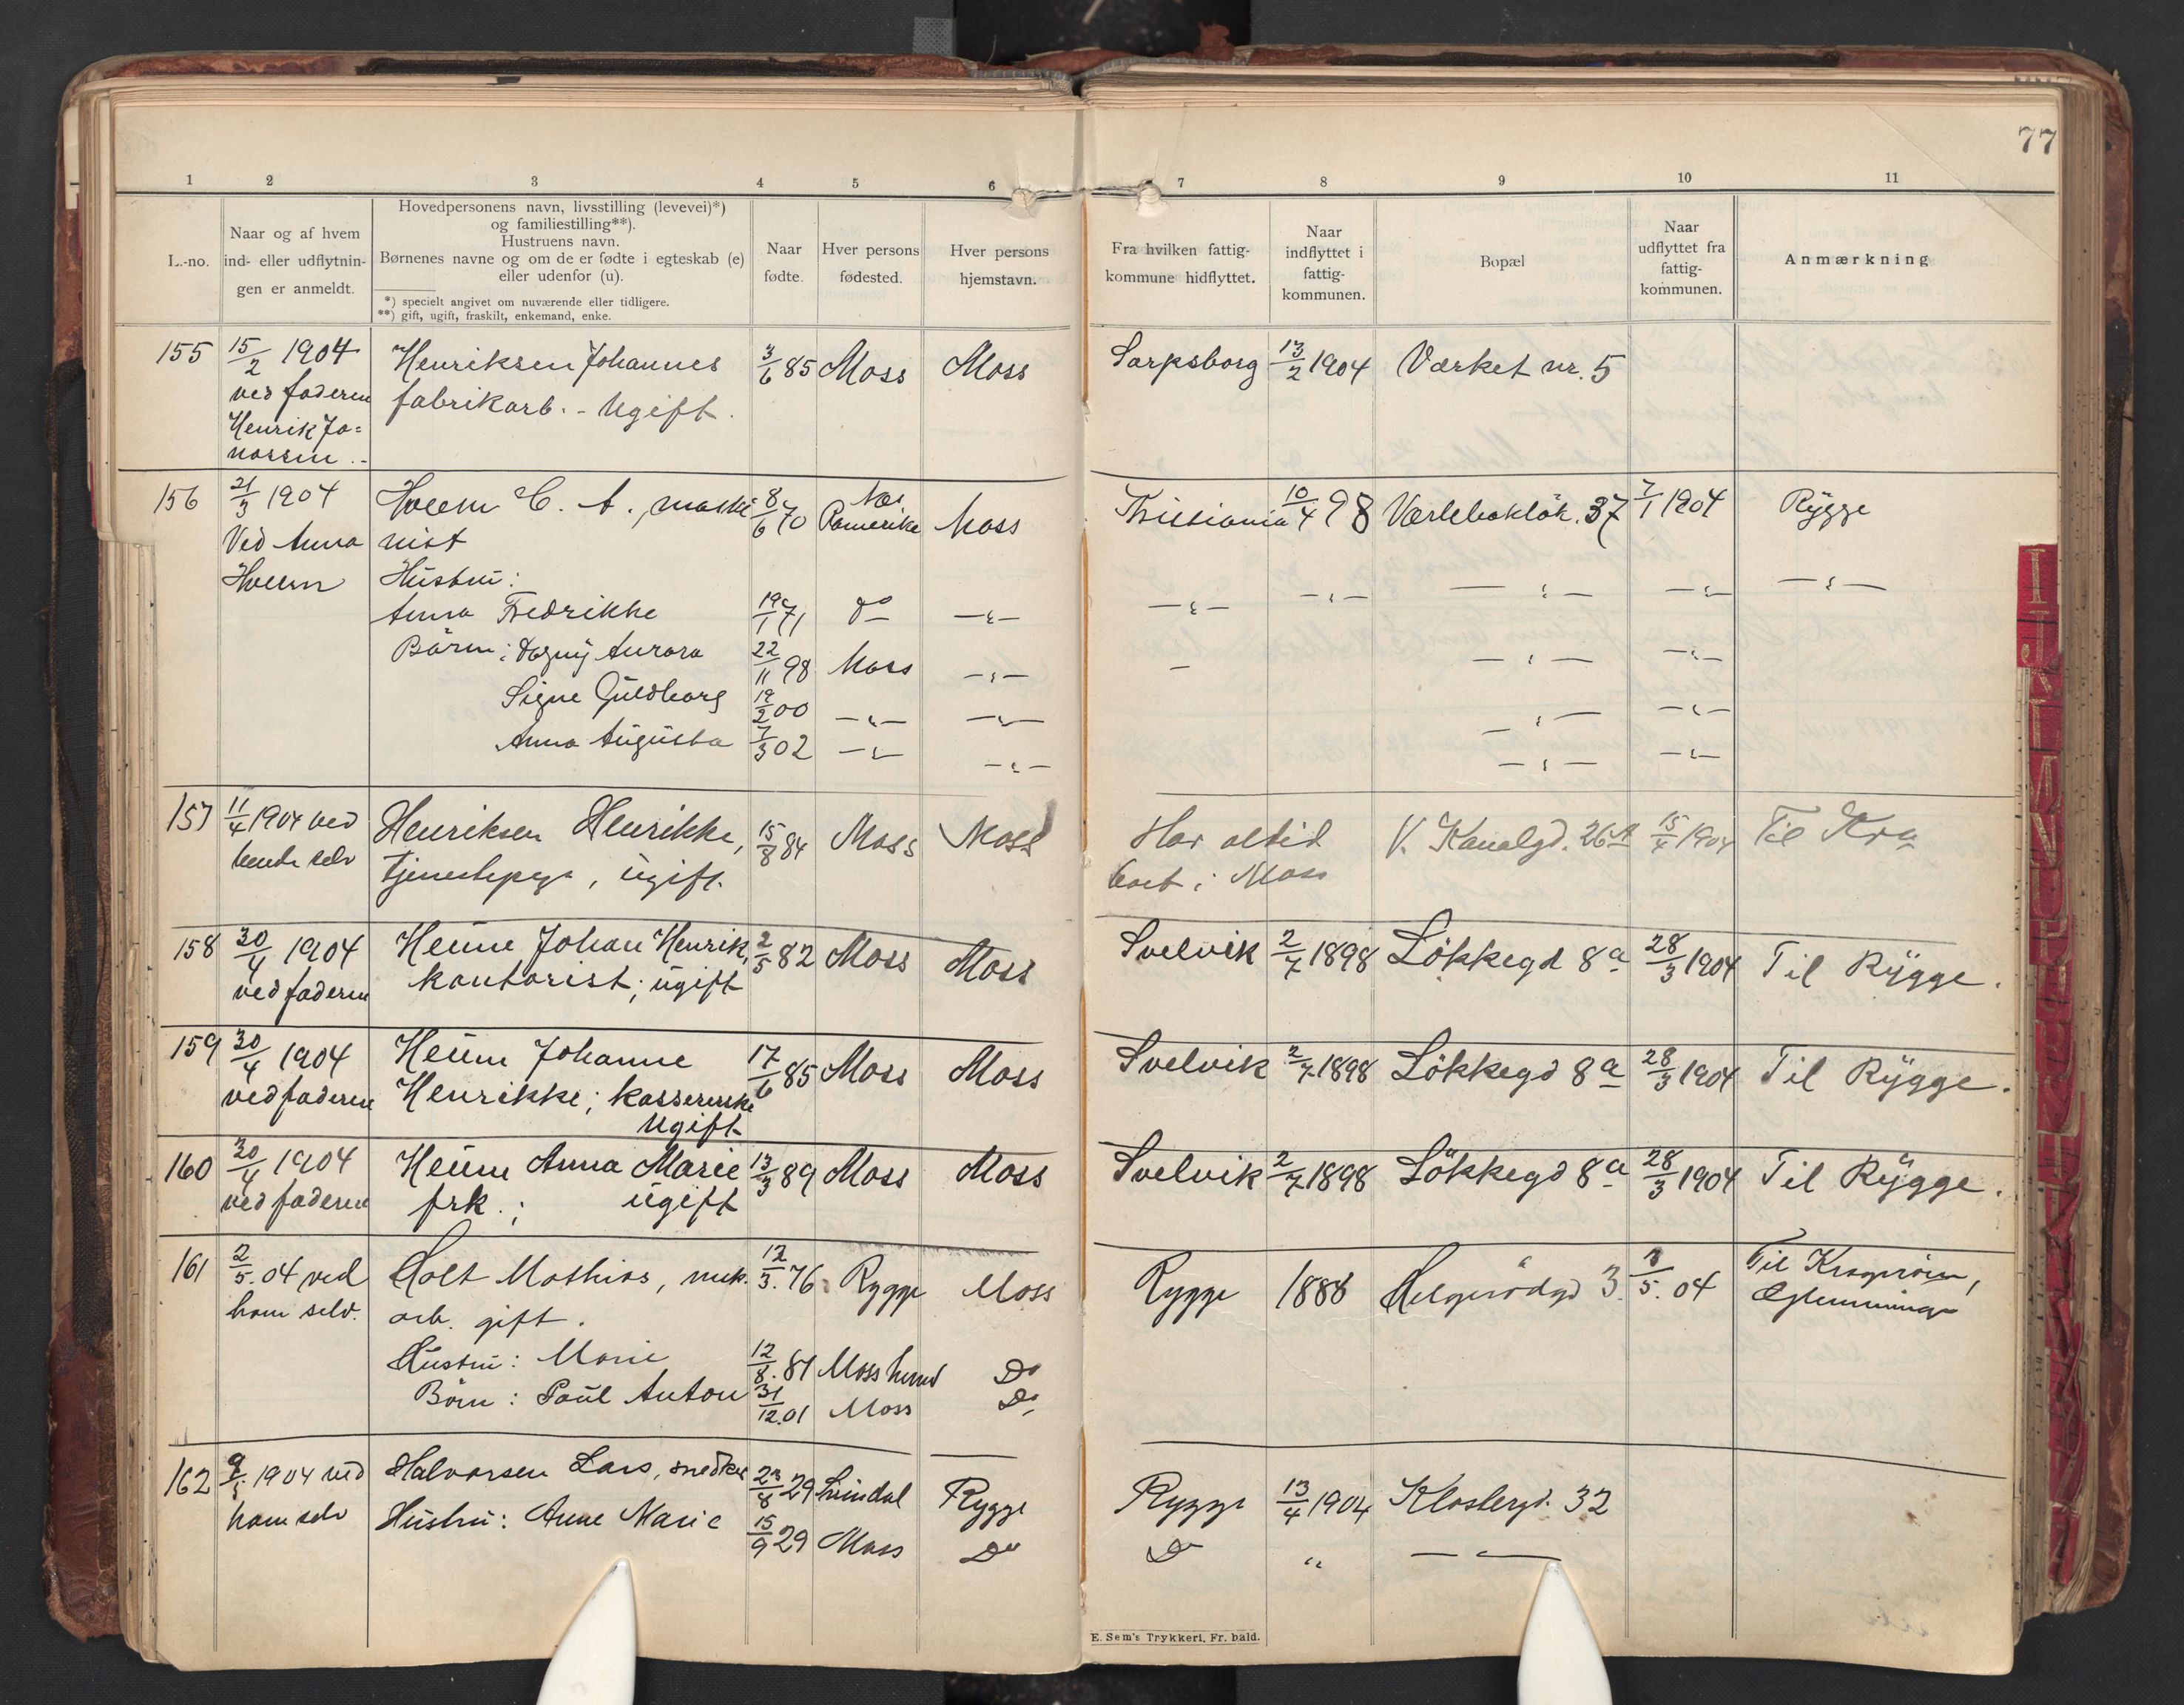 77
1 2 3 4 5 6 7 8 9 10 11
L.-no.
Naar og af hvem
ind- eller udflytnin-
gen er anmeldt.
Hovedpersonens navn, livsstilling (levevei)*)
og familiestilling**).
Hustruens navn.
Børnenes navne og om de er fødte i egteskab (e)
eller udenfor (u).
*) specielt angivet om nuværende eller tidligere.
**) gift, ugift, fraskilt, enkemand, enke.
Naar
fødte.
Hver persons
fødested.
Hver persons
hjemstavn.
Fra hvilken fattig-
kommune hidflyttet.
Naar
indflyttet i
fattig-
kommunen.
Bopæl
Naar
udflyttet fra
fattig-
kommunen.
Anmærkning
155 15/2 1904 Henriksen Johannes 3/6 85 Moss Moss Sarpsborg 13/2 1904 Værket nr. 5
ved faderen fabrikarb. - Ugift.
Henrik Jo=
nassen.-
156 21/3 1904 Hveem C. A., maski 8/6 70 Romerike Moss Kristiania 10/4 98 37 7/1 1904 Rygge
Ved Anna nist
Hveem Hustru:
Anna Fredrikke 19/1 71 do -"- -"- -"- -"- -"- -"-
Børn: Dagny Aurora 22/11 98 Moss -"- - -"- -"-
Signe Guldborg 19/2 00 -"- -"- -"- -"-
Anna Augusta 7/3 02 -"- -"- -"- -"-
157 11/4 1904 ved Henriksen Henrikke, 15/8 84 Moss Moss Har altid V. Kanalgd. 26A 15/4 1904 Til Kra
hende selv tjenestepige, ugift. boet i Moss
158 30/4 1904 Heum Johan Henrik, 2/5 82 Moss Moss Svelvik 2/7 1898 Løkkegd 8a 28/3 1904 Til Rygge.
ved faderen kontorist; ugift
159 30/4 1904 Heum Johanne 17/6 85 Moss Moss Svelvik 2/7 1898 Løkkegd 8a 28/3 1904 Til Rygge.
ved faderen Henrikke; kassererske
Ugift
160 30/4 1904 Heum Anna Marie 13/3 89 Moss Moss Svelvik 2/7 1898 Løkkegd 8a 28/3 1904 Til Rygge.
ved faderen frk.; ugift
161 2/5. 04 ved Holt Mathias, mek. 12/3. 76 Rygge Moss Rygge 1888 Helgerødgd 3. /5. 04 Til
ham selv. arb. gift. Glemminge
Hustru: Marie 12/8. 81 Mosslund Do
Børn: Paul Anton 31/12. 01 Moss Do
162 9/5 1904 ved Halvorsen Lars, snedker 23/8 29 Rygge Rygge 13/4 1904 Klostergd. 32
ham selv Hustru: Anne Marie 15/9 29 Moss Do Do " -"-
E. Sem's Trykkeri, Fr. hald.